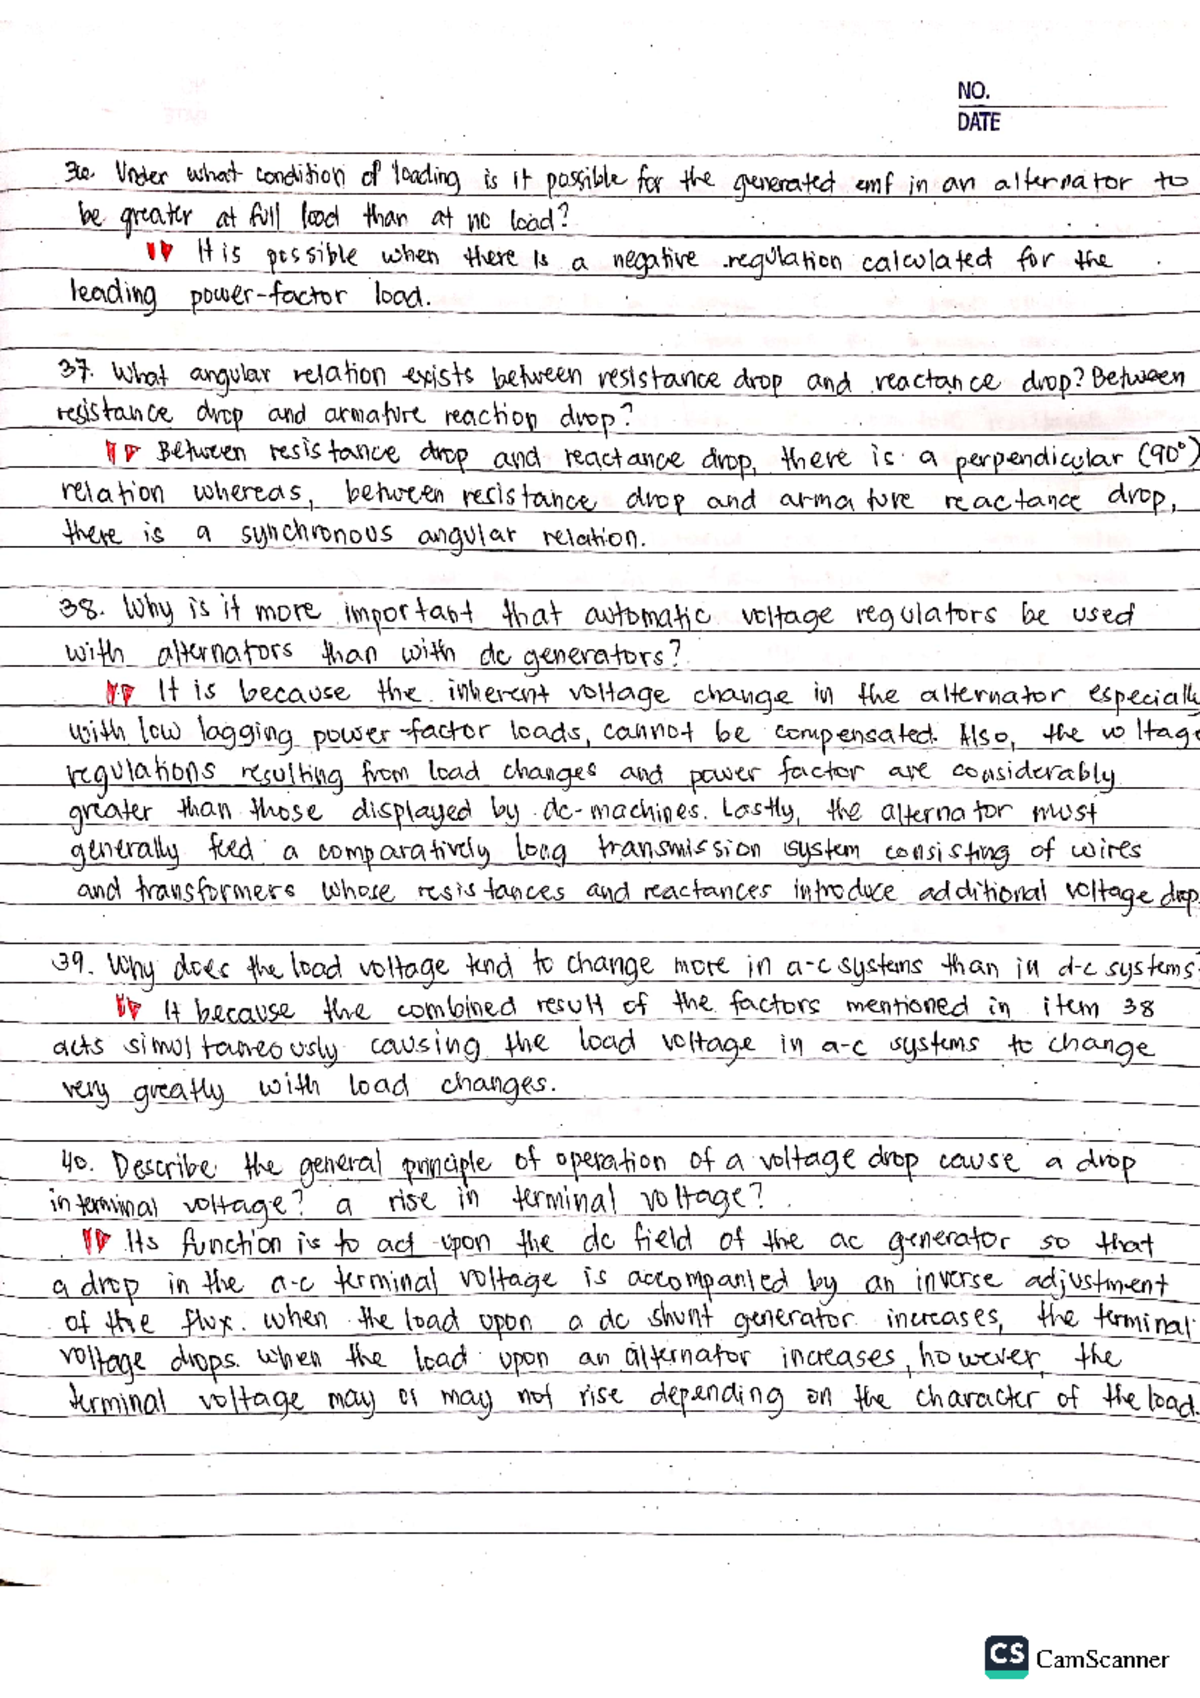 NO.
DATE
36. Under what condition of loading is it possible for the generated emf in an alternator to
be greater at full load than at no load?
It is possible when there is a negative regulation calculated for the
leading power-factor load.
37. What angular relation exists between resistance drop and reactance drop? Between
resistance drop and armature reaction drop?
Between resistance drop and reactance drop, there is a perpendicular (90°)
relation whereas, between resistance drop and armature reactance drop,
there is a synchronous angular relation.
38. Why is it more important that automatic voltage regulators be used
with alternators than with dc generators?
It is because the inherent voltage change in the alternator especially
with low lagging power-factor loads, cannot be compensated. Also, the voltage
regulations resulting from load changes and power factor are considerably
greater than those displayed by dc-machines. Lastly, the alternator must
generally feed a comparatively long transmission system consisting of wires
and transformers whose resistances and reactances introduce additional voltage drop.
39. Why does the load voltage tend to change more in a-c systems than in d-c systems?
It because the combined result of the factors mentioned in item 38
acts simultaneously causing the load voltage in a-c systems to change
very greatly with load changes.
40. Describe the general principle of operation of a voltage drop cause a drop
in terminal voltage? a rise in terminal voltage?
Its function is to act upon the dc field of the ac generator so that
a drop in the a-c terminal voltage is accompanied by an inverse adjustment
of the flux. when the load upon a dc shunt generator increases, the terminal
voltage drops. when the load upon an alternator increases, however, the
terminal voltage may or may not rise depending on the character of the load.
CS CamScanner